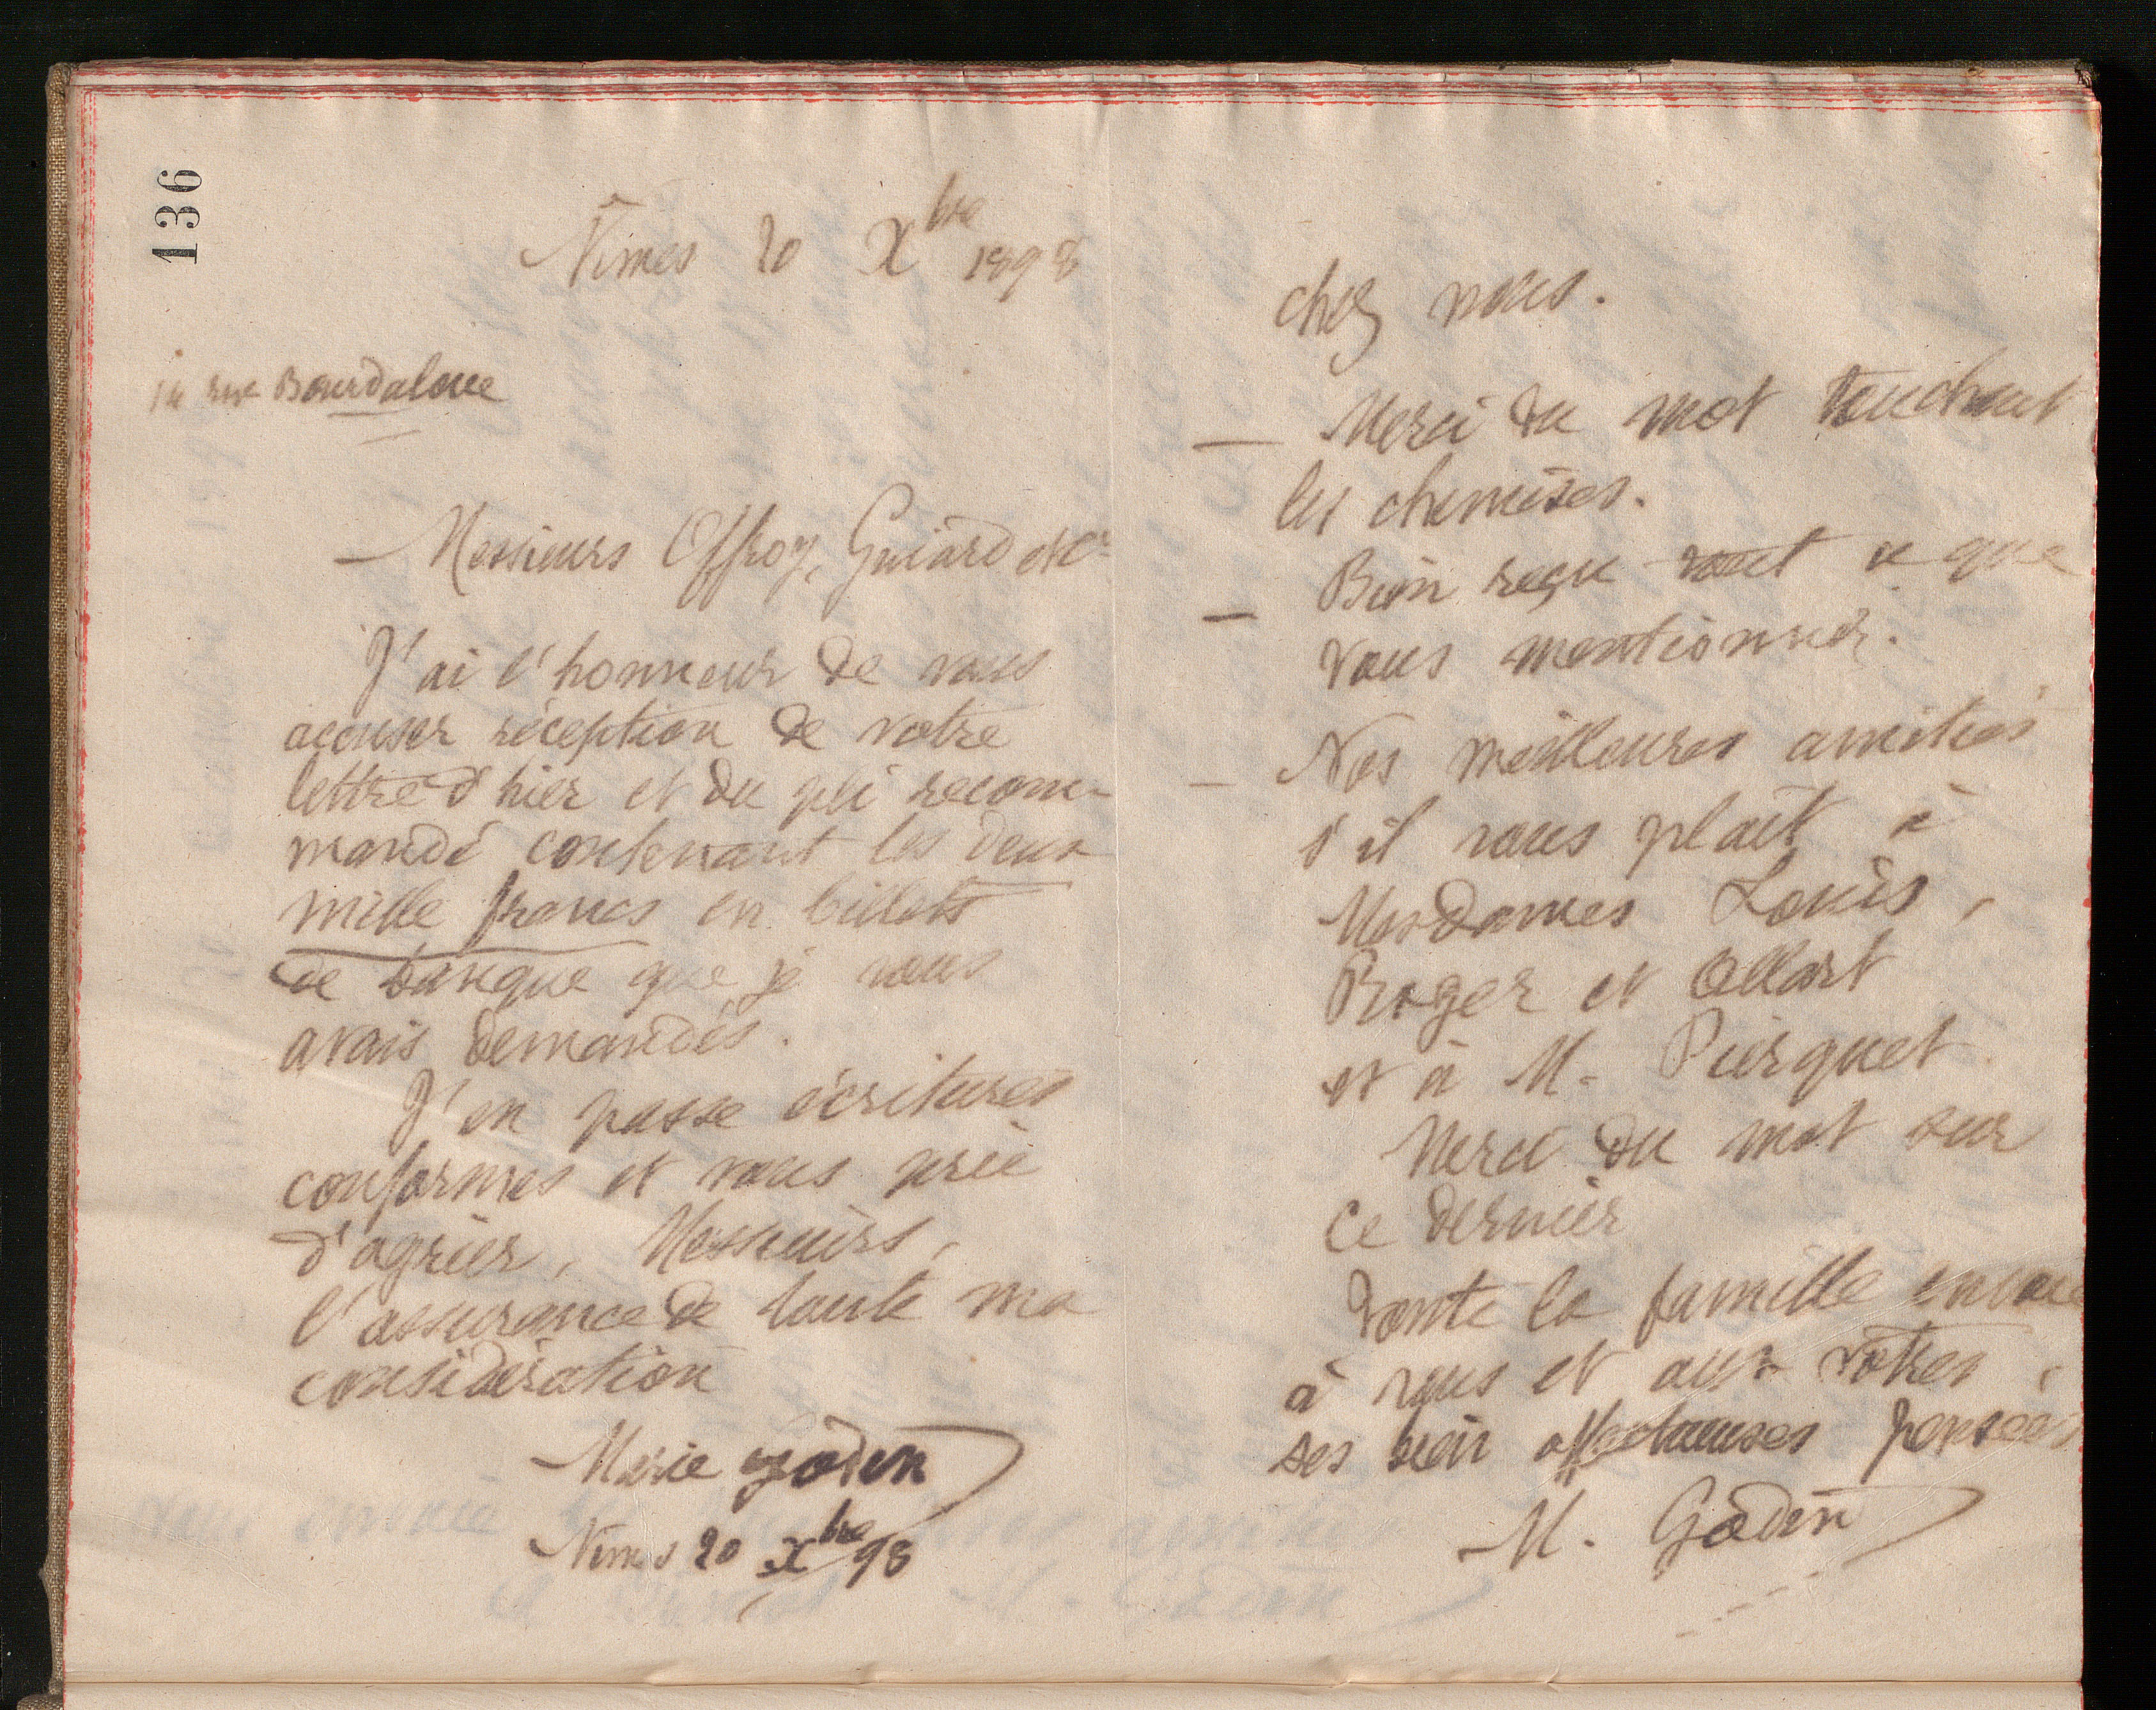 136
Nîmes 20 Xbre 1898
14 rue Bourdaloue
— Messieurs Offroy, Guiard et Cie
J'ai l'honneur de vous
accuser réception de votre
lettre d'hier et du pli recom-
mandé contenant les deux
mille francs en billets
de banque que je vous
avais demandés.
J'en passe écritures
conformes et vous prie
d'agréer, Messieurs,
l'assurance de toute ma
considération
Marie Godin
Nîmes 20 Xbre 98
chez vous.
— Merci du mot touchant
les chemises.
— Bien reçu tout ce que
vous mentionnez.
— Nos meilleures amitiés
s'il vous plaît à
Mesdames Louis,
Roger et Allart
et à M. Pierquet.
Merci du mot sur
ce dernier
Toute la famille envoie
à vous et aux vôtres,
ses bien affectueuses pensées
M. Godin